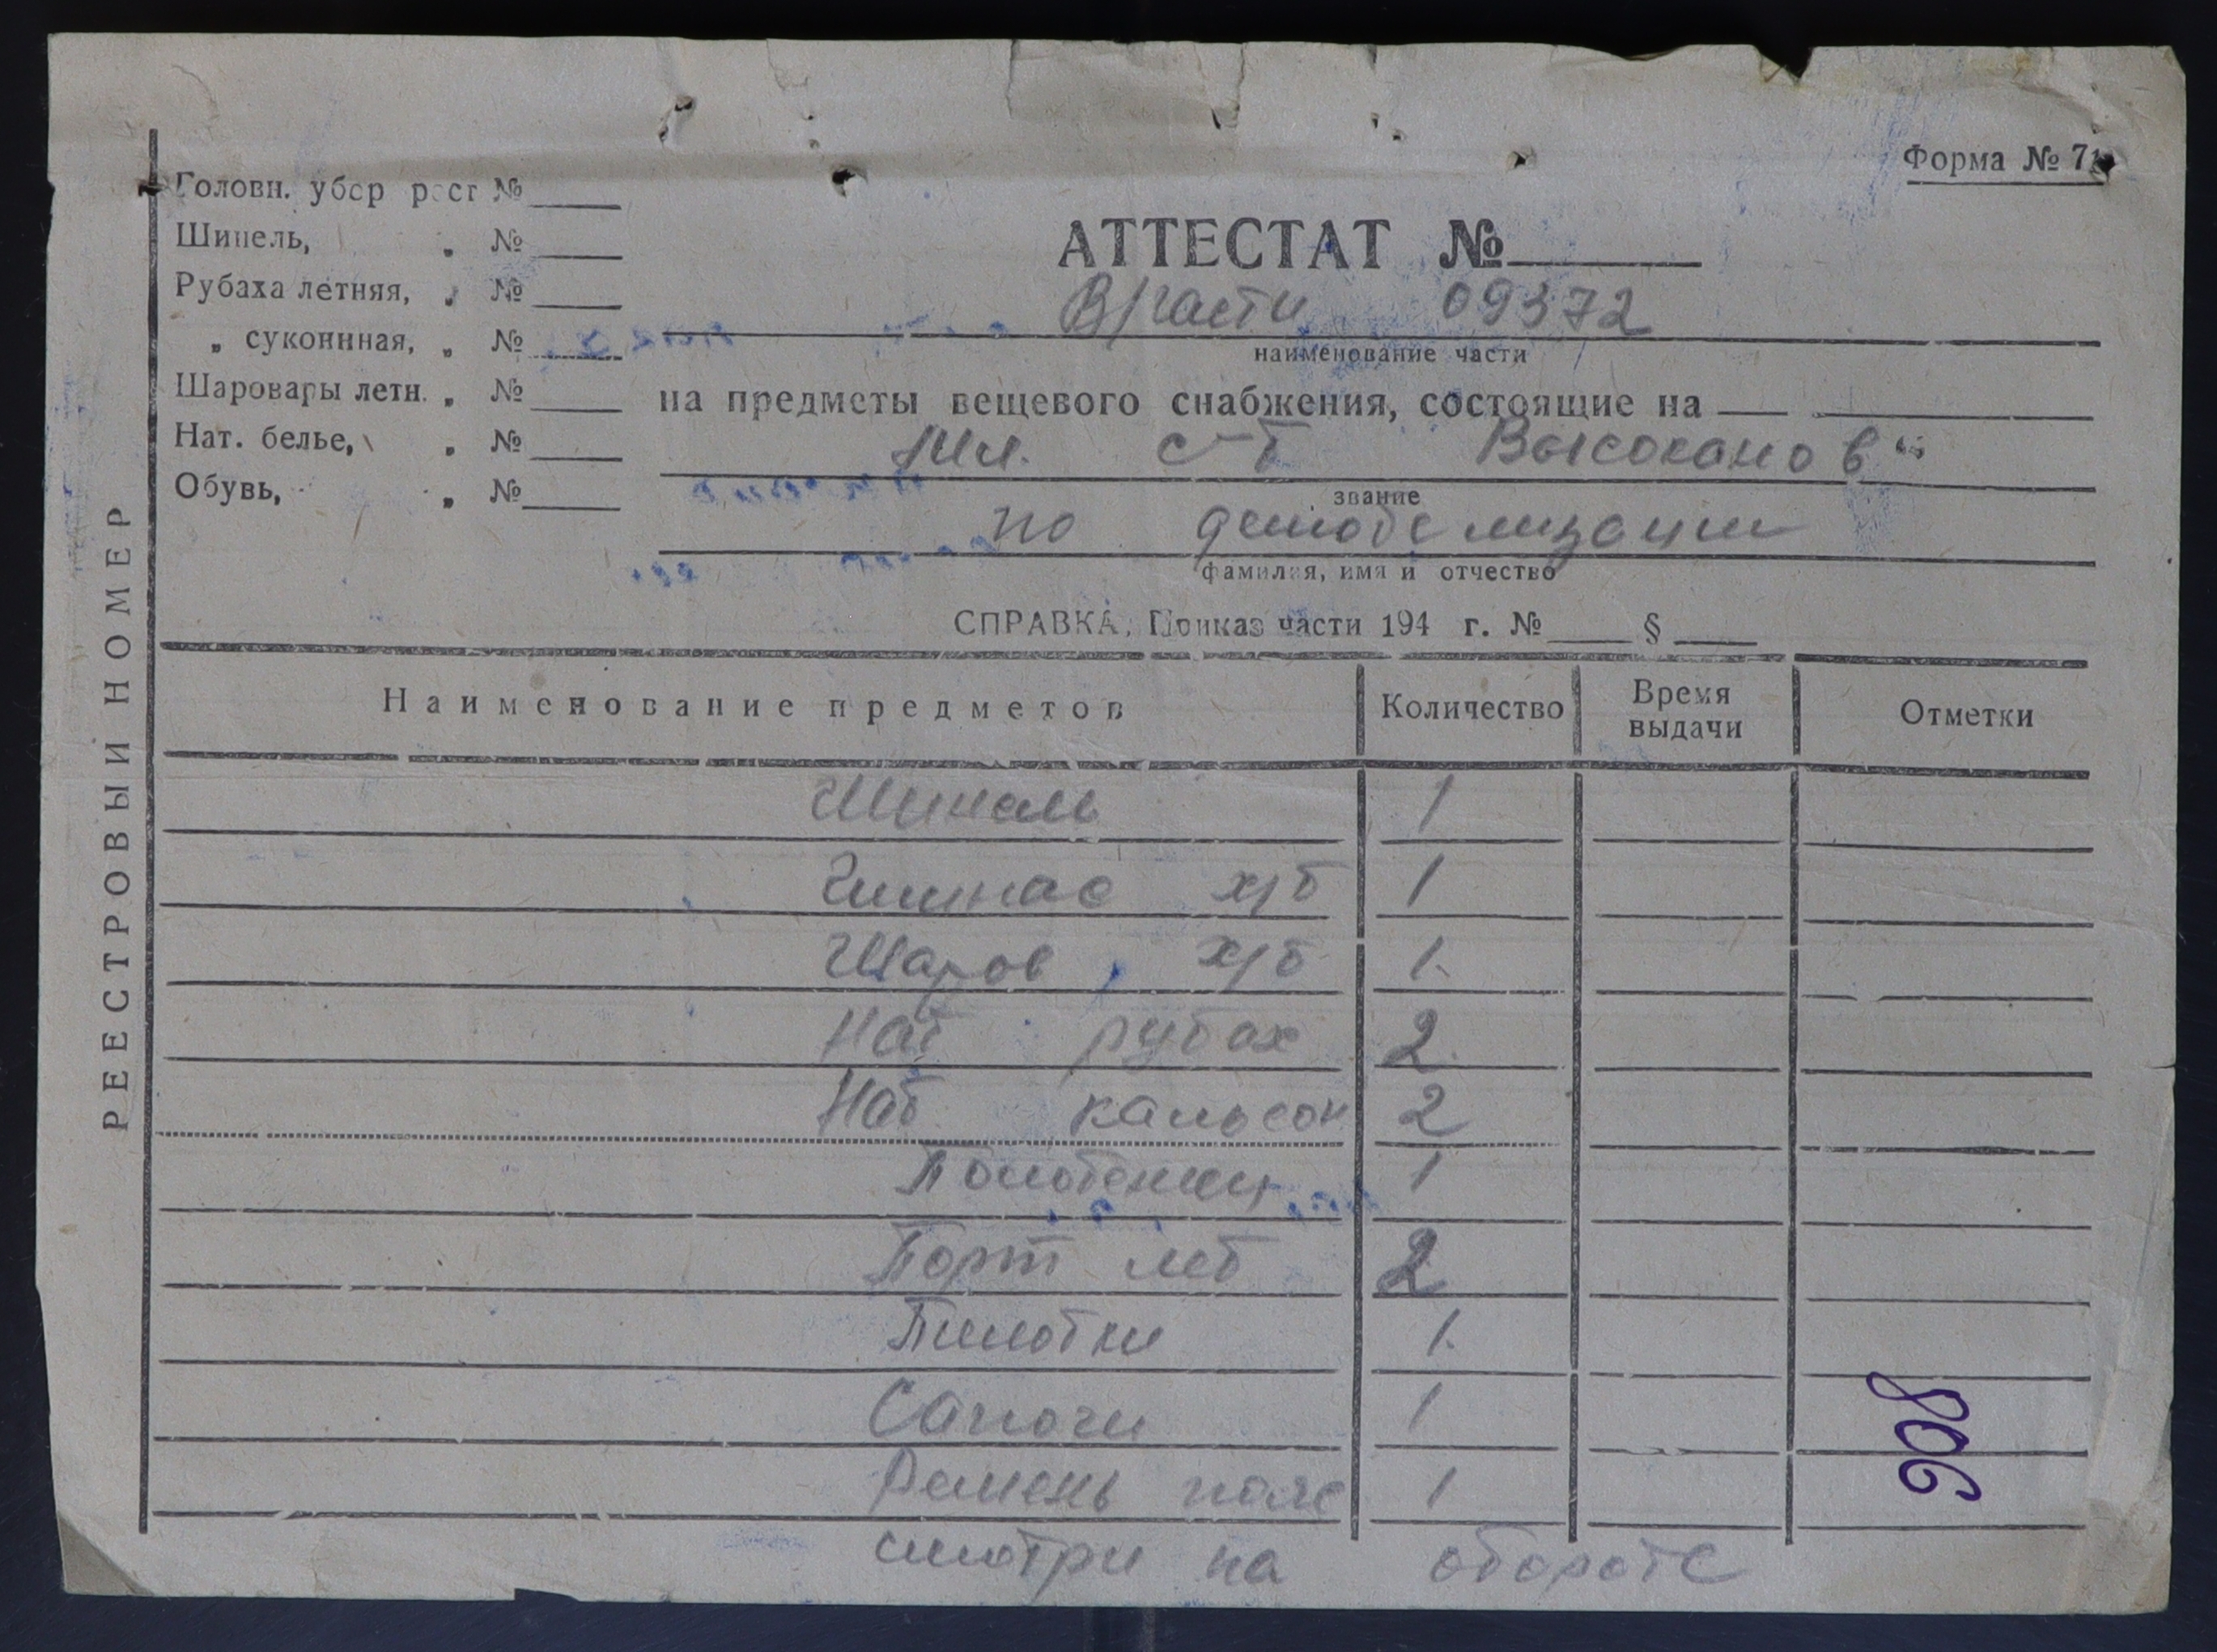 Форма № 71
Головн. убор рост №
Шинель, „ №
Рубаха летняя, „ №
„ суконнная, „ №
Шаровары летн. „ №
Нат. белье, „ №
Обувь, „ №
РЕЕСТРОВЫЙ НОМЕР
АТТЕСТАТ №
В/части 09372
наименование части
на предметы вещевого снабжения, состоящие на
Мл. с-т Высоканов
звание
по демобелизации
фамилия, имя и отчество
СПРАВКА, Приказ части 194 г. № §
Наименование предметов Количество Время выдачи Отметки
Шинель 1
Гимнас х/б 1
Шаров х/б 1.
Нат рубах 2.
Нат кальсон 2
Полотенец 1
Порт лет 2
Пилотки 1.
Сапоги 1
Ремень пояс 1
908
смотри на обороте